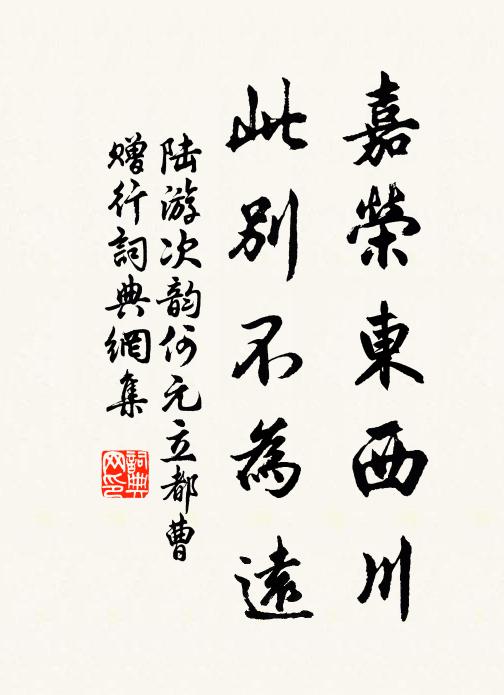 嘉榮東西川
此別不為遠
陆游次韵何元立都曹
贈行詞典網集
詞典
网印